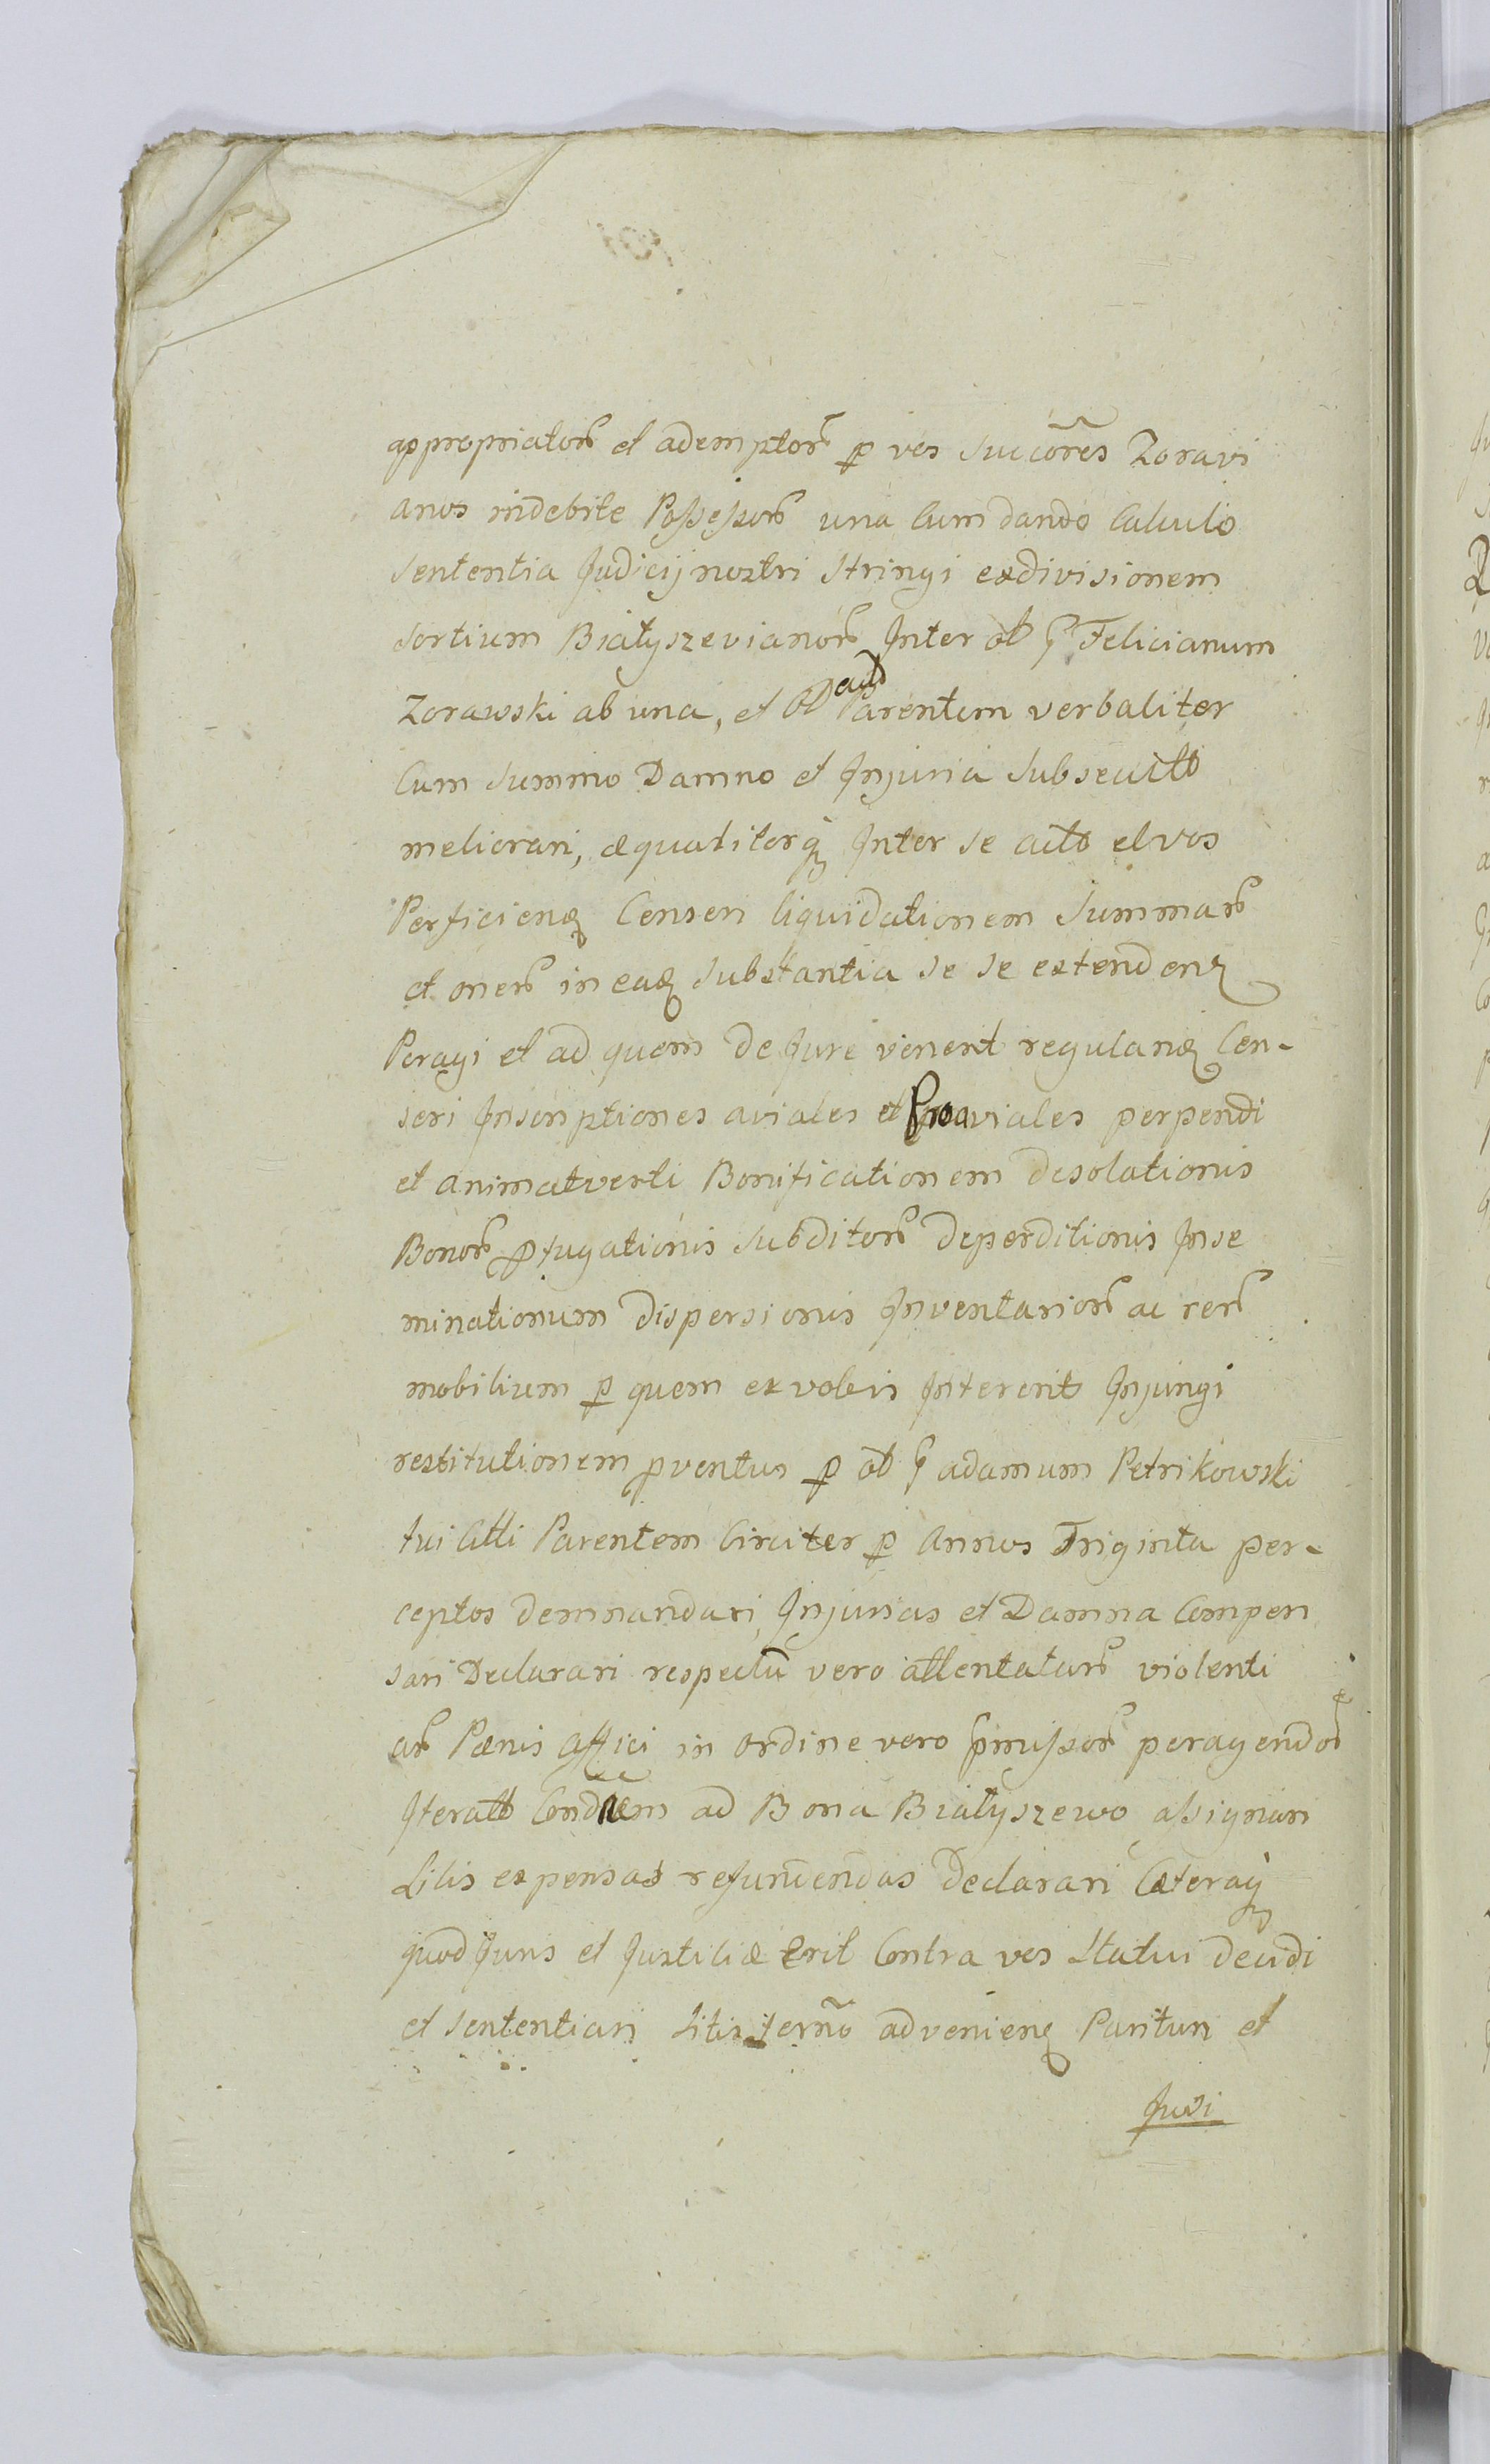 appropriator et ademptor p vos Succores Zoravi
anos indebite Possessor una Cum dando Calculo
Sententia Judicij nostri Stringi exdivisionem
Sortium Białyszevianor Inter ol G Felicianum
Zorawski ab una, et Parentem verbaliter
Cum Summo Damno et Injuria Subsecuto
meliorari, æqualiterq Inter se et vos
Perficienq Censeri liquidationem Summar
et oner in eaq Substantia se se extenden
Peragi et ad quem de Jure venerit regulanq Cen-
seri Inscriptiones aviales et Proaviales perpendi
et animatverti Bonificationem desolationis
Bonor pfugationis Subditor deperditionis Inse
minationum dispersionis Inventarior ac rer
mobilium p quem ex vobis Intererit Injungi
restitutionem pventus p ol G adamum Petrikowski
tui Atti Parentem Circiter p Annos Triginta per-
ceptos demnandari, Injurias et Damna Compen
sari Declarari respectu vero attentatar violenti
ar Pænis Affici in ordine vero pmissor peragendor
Iterato Condnem ad Bona Białyszewo assignari
Litis expensas refundendas Declarari Cæteraq
quod Juris et Justitiæ Erit Contra vos Statui decidi
et Sententiari Litis termo advenienq Parituri et
Judi